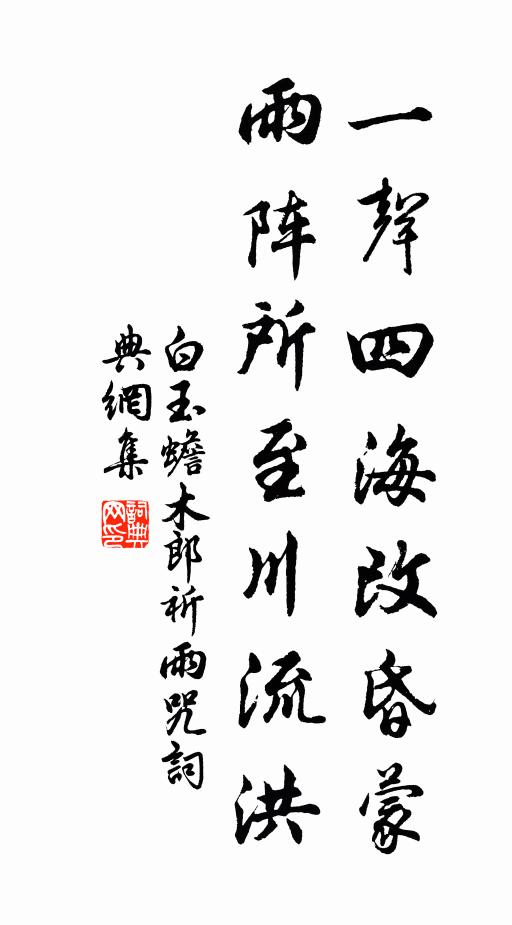 一聲四海改昏蒙
雨阵所至川流洪
白玉蟾木郎祈雨咒詞
典網集
詞典
网印